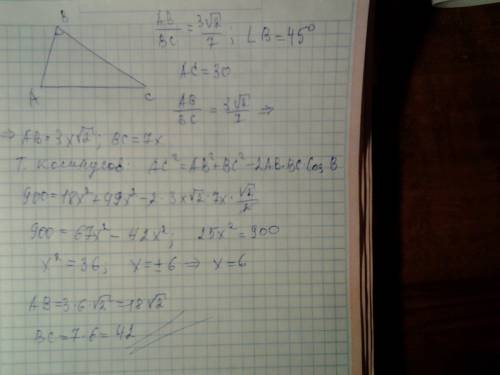 B
A
C
AB/BC = 3√2/7 ; ∠B = 45°
AC = 30
AB/BC = 3√2/7 ⇒
⇒ AB = 3x√2 ; BC = 7x
Т. косинусов: AC² = AB² + BC² - 2AB·BC·Cos B
900 = 18x² + 49x² - 2·3x√2·7x·√2/2
900 = 67x² - 42x² ; 25x² = 900
x² = 36, x = ±6 ⇒ x = 6
AB = 3·6·√2 = 18√2
BC = 7·6 = 42